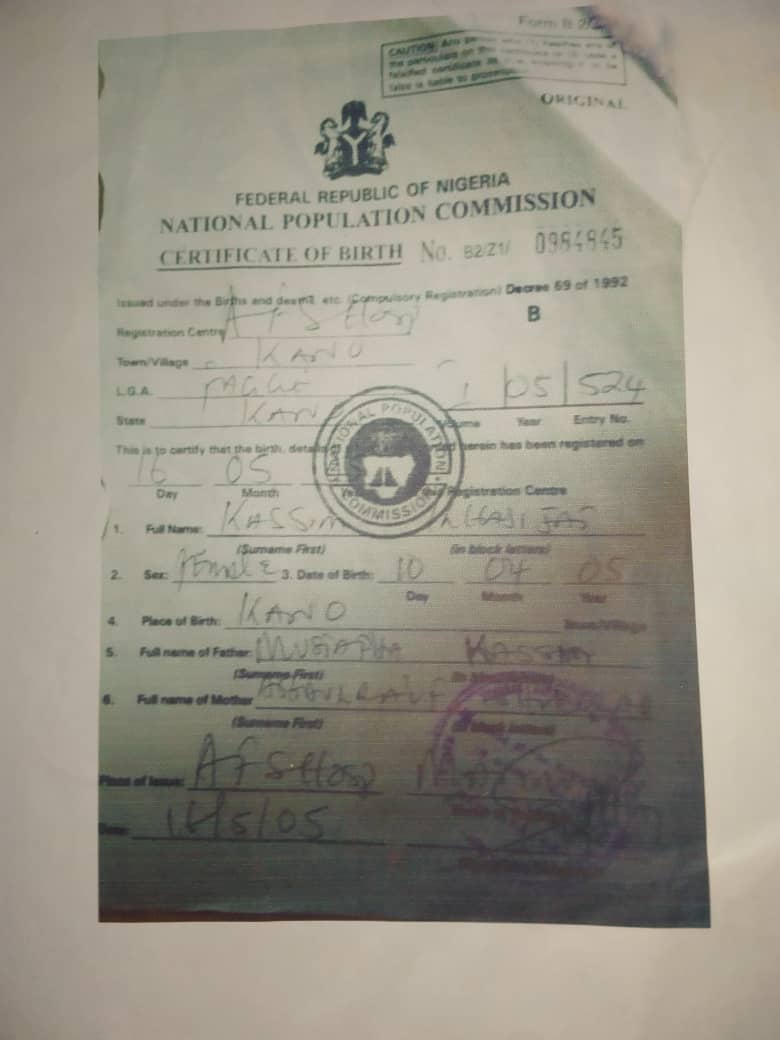 Form B
CAUTION: Any person who (1) falsifies any of
the particulars on this certificate or (2) uses a
falsified certificate as true, knowing it to be
false is liable to prosecution
ORIGINAL
FEDERAL REPUBLIC OF NIGERIA
NATIONAL POPULATION COMMISSION
CERTIFICATE OF BIRTH No. B2/Z1/ 0984845
Issued under the Births and deaths etc. (Compulsory Registration) Decree 69 of 1992
B
Registration Centre AFS Hosp
Town/Village KANO
L.G.A.
1 05 524
State KANO
Volume Year Entry No.
NATIONAL POPULATION COMMISSION
This is to certify that the birth, herein has been registered on
16 05
Day Month Registration Centre
1. Full Name: KASSIM
(Surname First) (in block letters)
2. Sex: Female 3. Date of Birth: 10 04 05
Day Month Year
4. Place of Birth: KANO
Town/Village
5. Full name of Father: MUSTAPHA KASSIM
(Surname First)
6. Full name of Mother ABDULRAUF
(Surname First)
Place of Issue: AFS Hosp
Date: 16/5/05